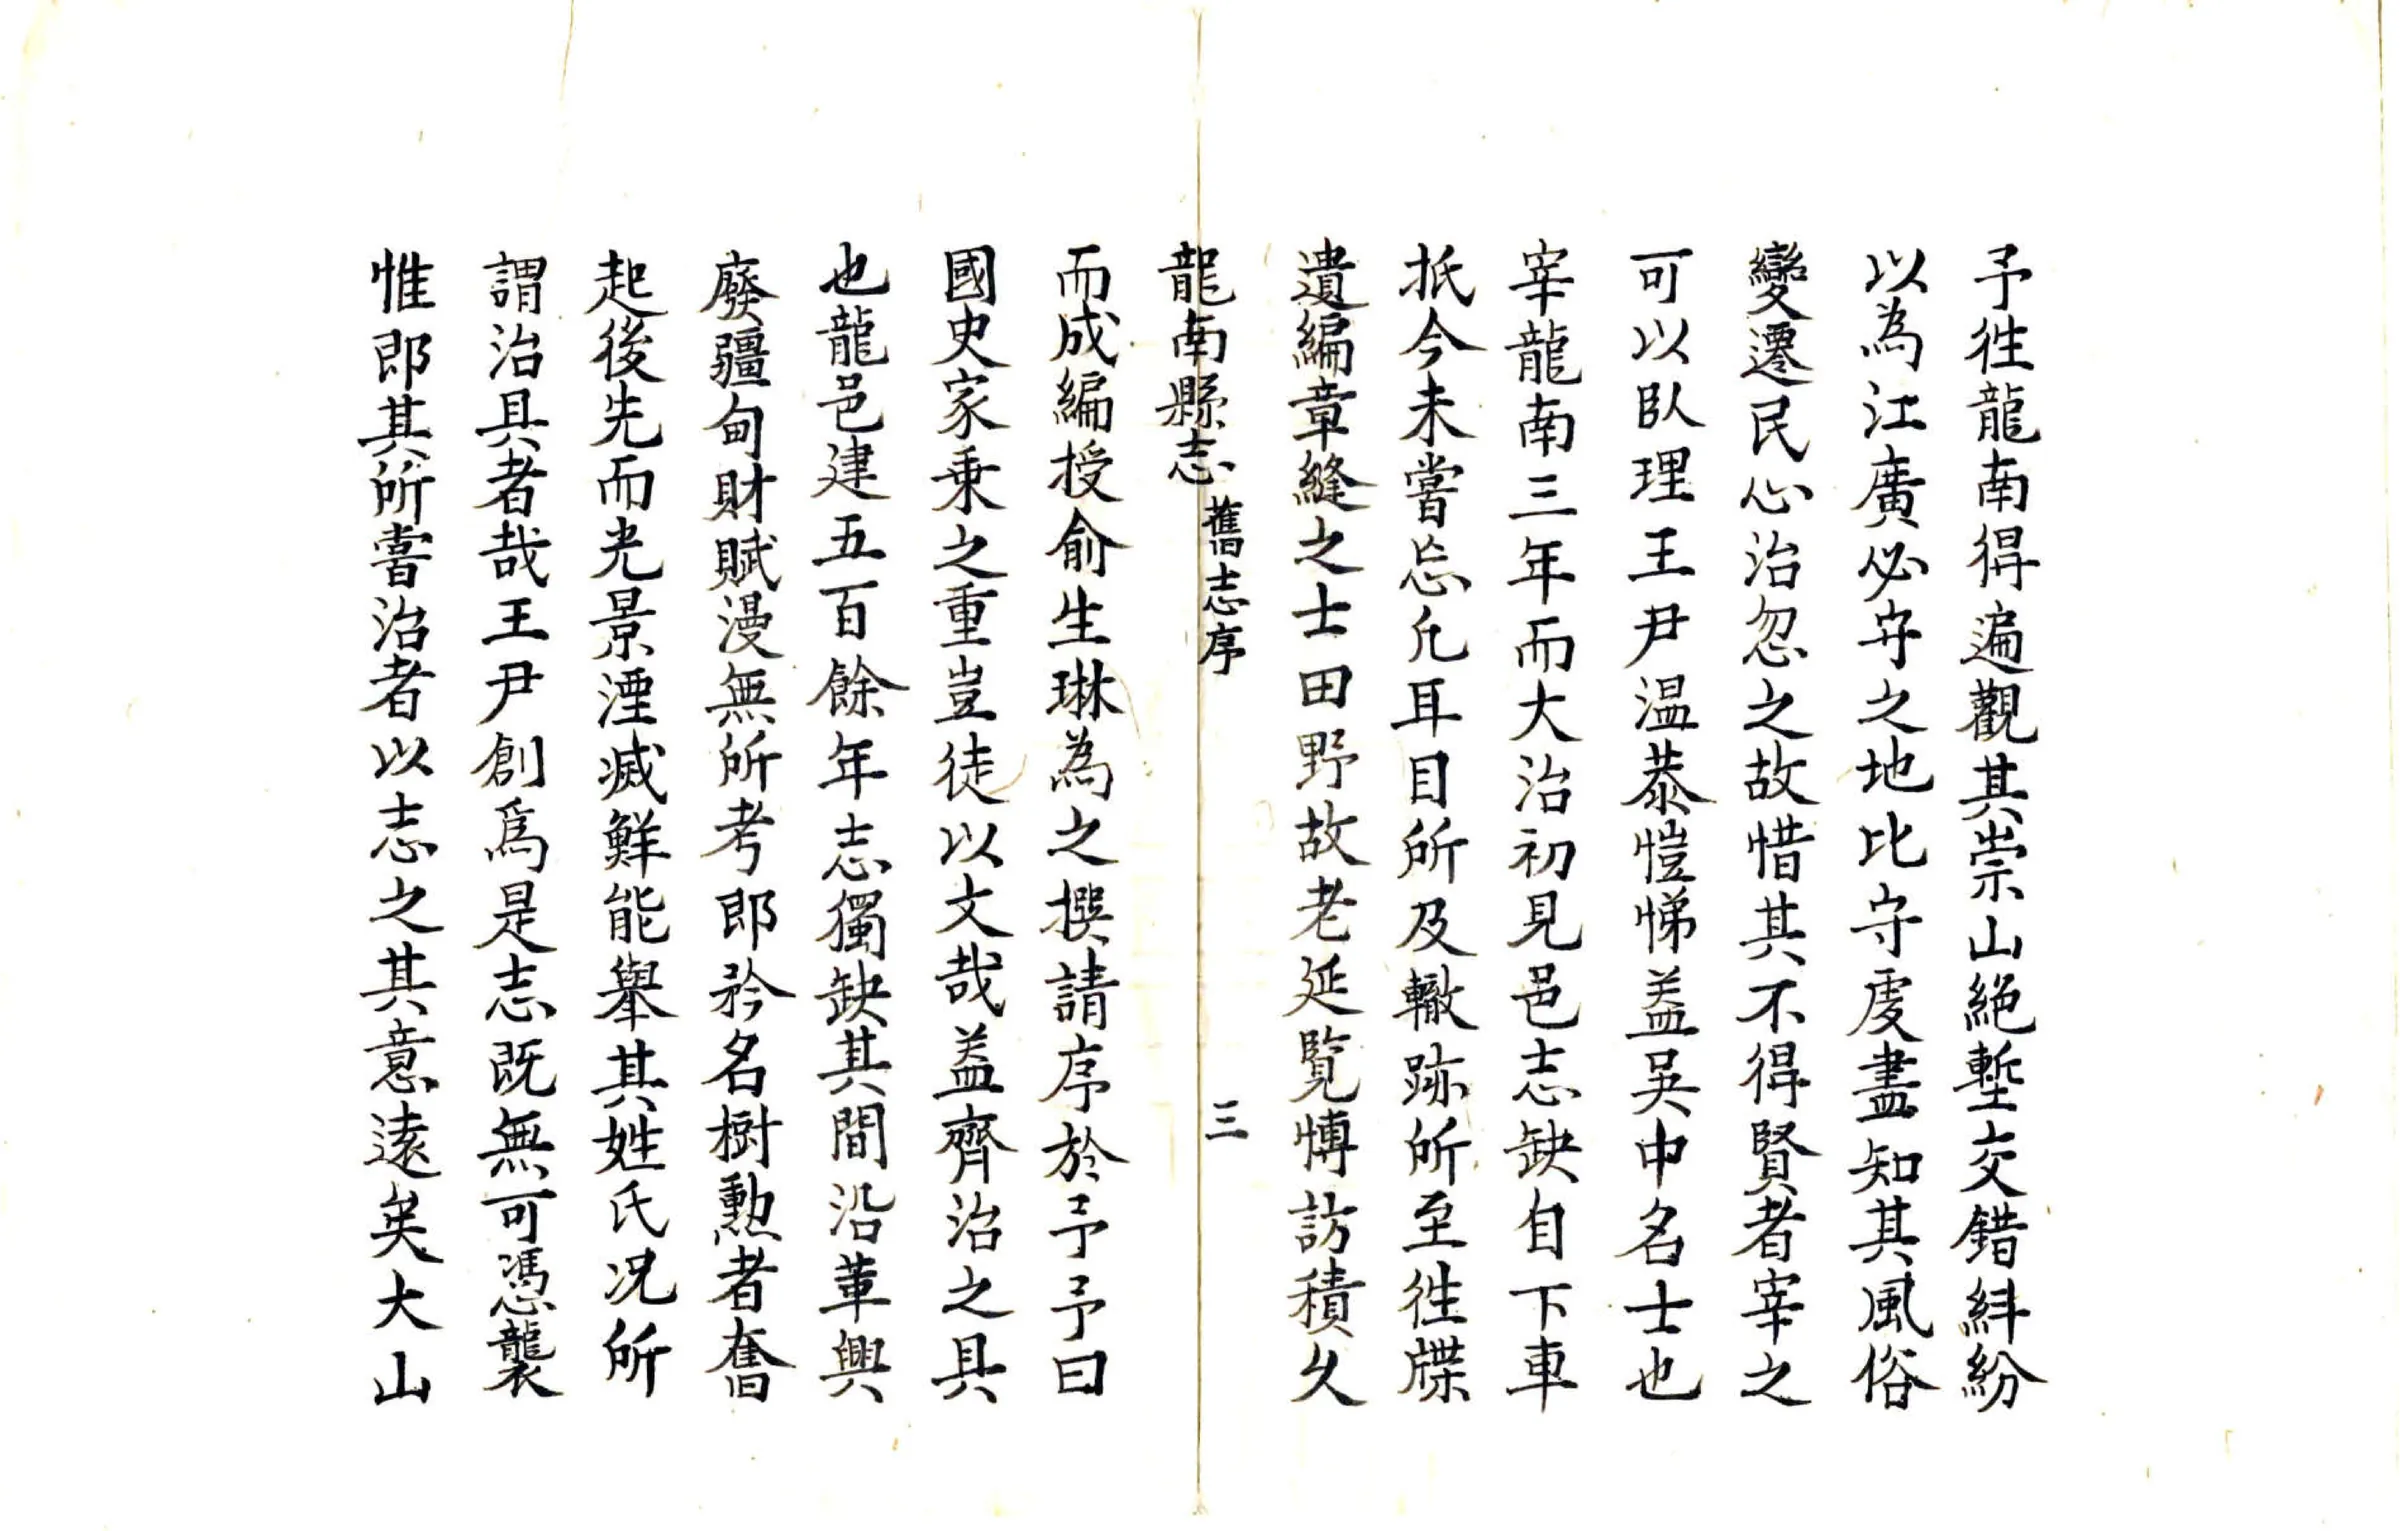 予徃龍南得遍觀其崇山絶塹交錯紏紛
以為江廣必守之地比守虔盡知其風俗
變遷民心治忽之故惜其不得賢者宰之
可以臥理王尹温恭愷悌盖吳中名士也
宰龍南三年而大治初見邑志缺自下車
抵今未嘗忘凢耳目所及轍跡所至徃牒
遺編章縫之士田野故老延覧博訪積久
龍南縣志 舊志序 三
而成編授俞生琳為之撰請序於予予曰
國史家乗之重豈徒以文哉盖齊治之具
也龍邑建五百餘年志獨缺其間沿革興
廢疆甸財賦漫無所考即矜名樹勲者奮
起後先而光景湮滅鮮能舉其姓氏况所
謂治具者哉王尹創爲是志既無可憑襲
惟即其所嘗治者以志之其意遠矣大山